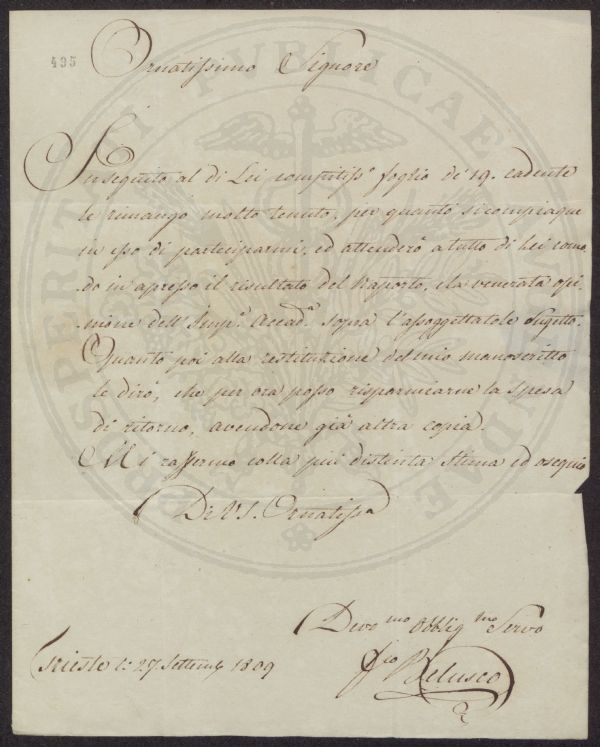 495
Ornatissimo Signore
In seguito al di Lei compitiss.º foglio de' 19. cadente
le rimango molto tenuto, per quanto si compiaque
in esso di parteciparmi, ed attenderò a tutto di Lei como
do in apresso il risultato del Raporto, e la venerata opi
nione dell' Imp.e Accad.a sopra l'assoggettatole Sugetto.
Quanto poi alla restituzione del mio manoscritto
le dirò, che per ora posso risparmiarne la Spesa
di ritorno, avendone già altra copia.
Mi raffermo colla più distinta Stima ed osequio
Di V. S. Ornatissa
Devo.mo Obblig.mo Servo
Trieste li 27 Settemb 1809
PROSPERITATI PUBLICAE AUGENDAE